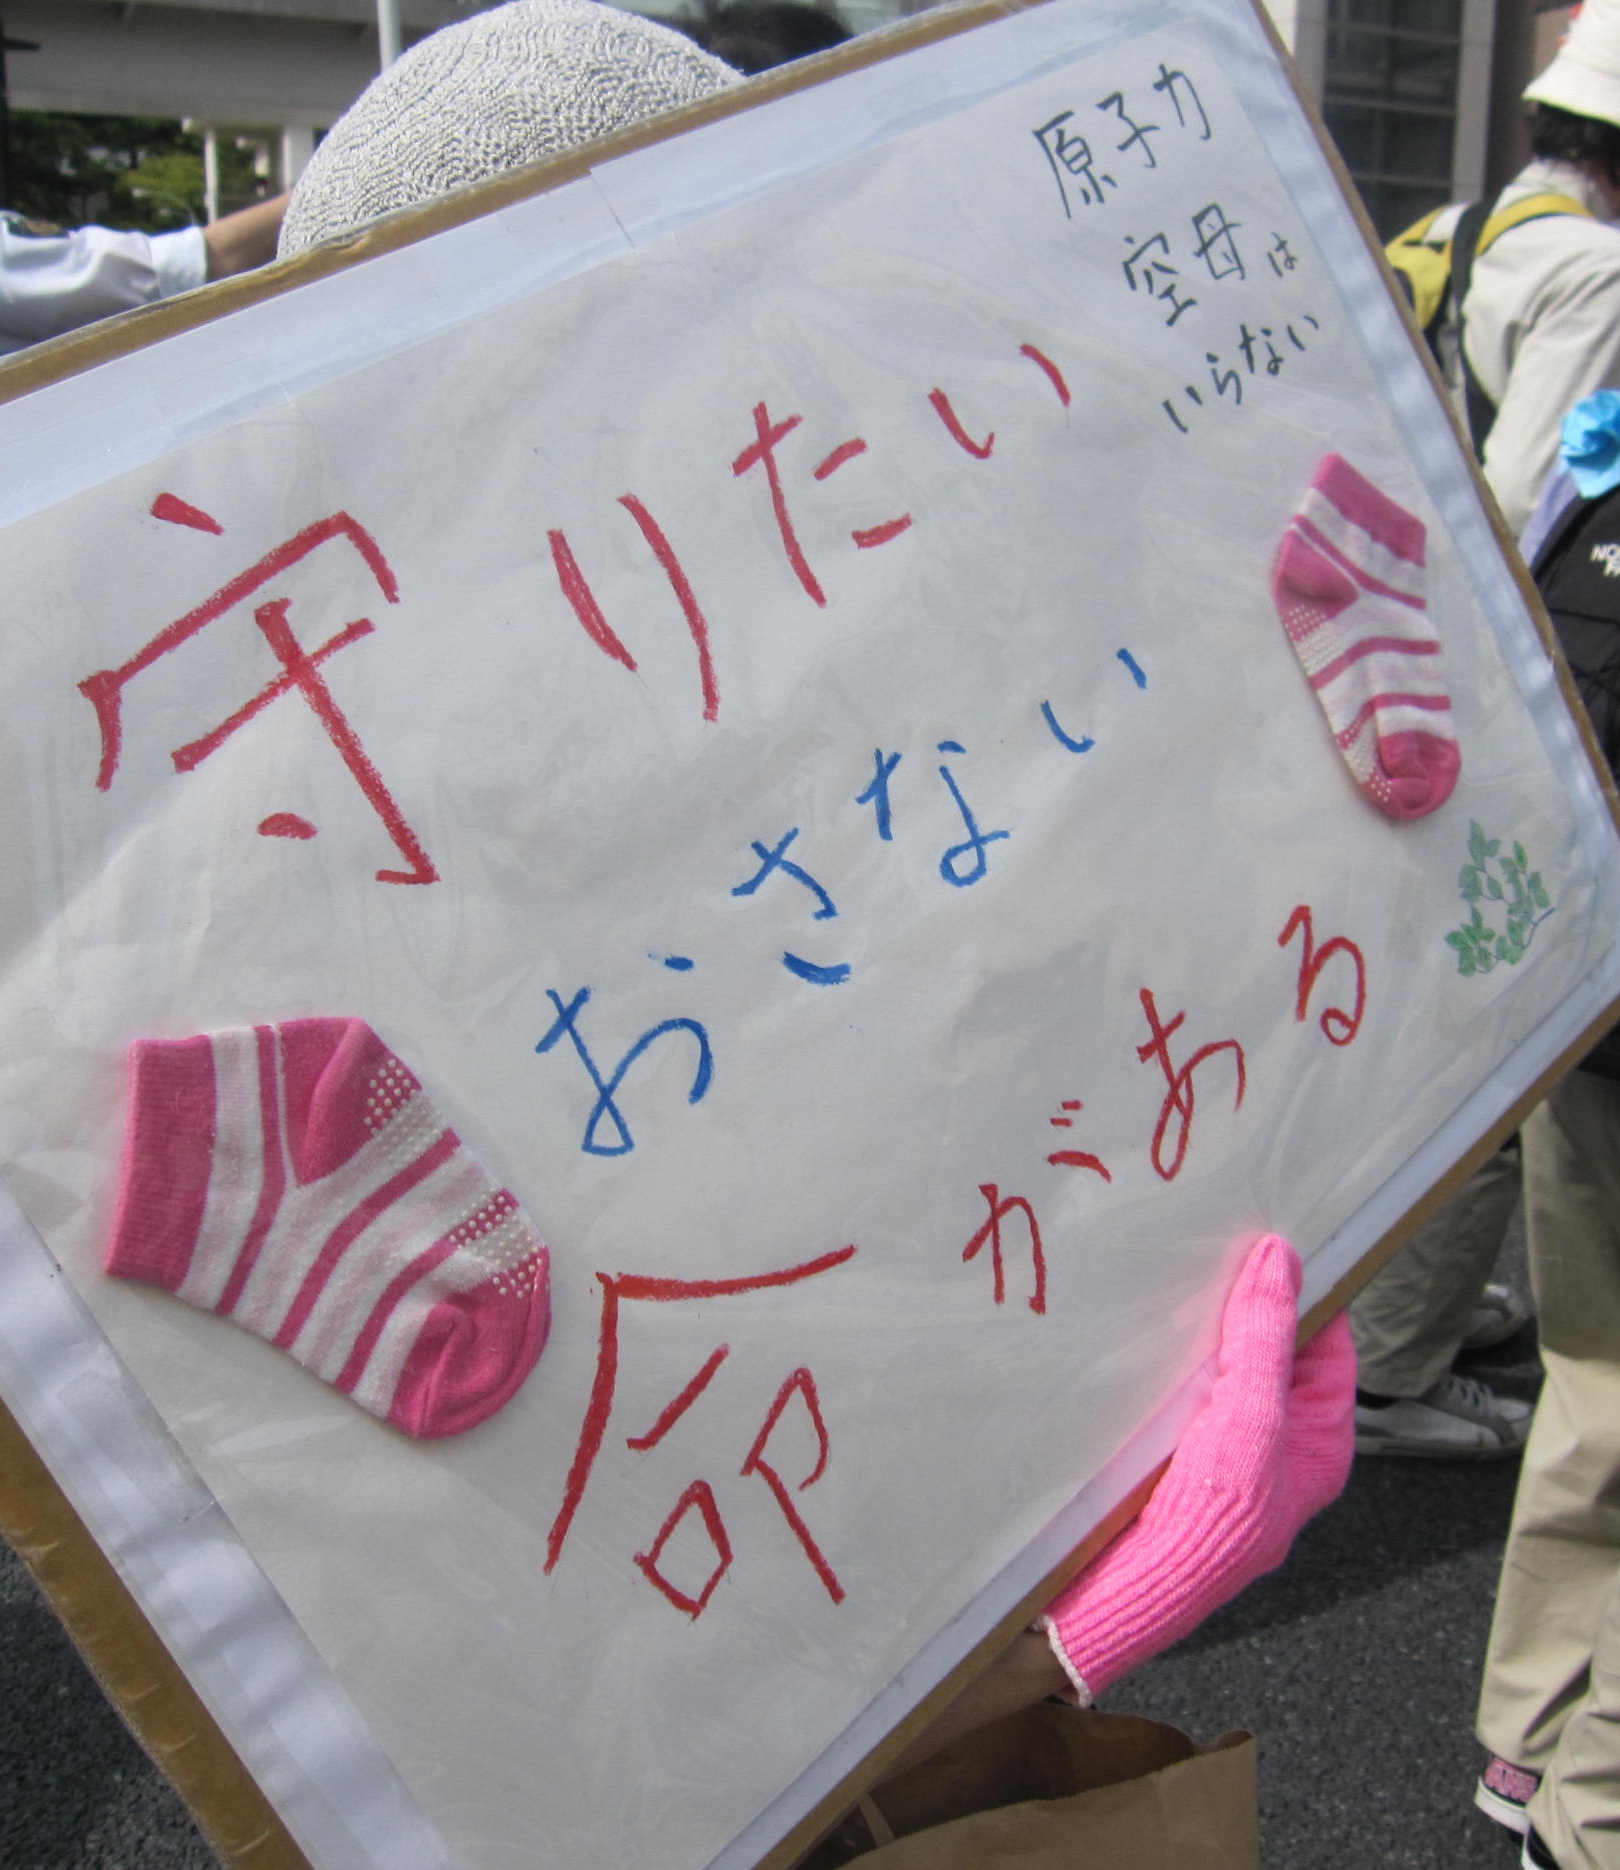 原子力
空母は
いらない
守りたい
おさない
命がある